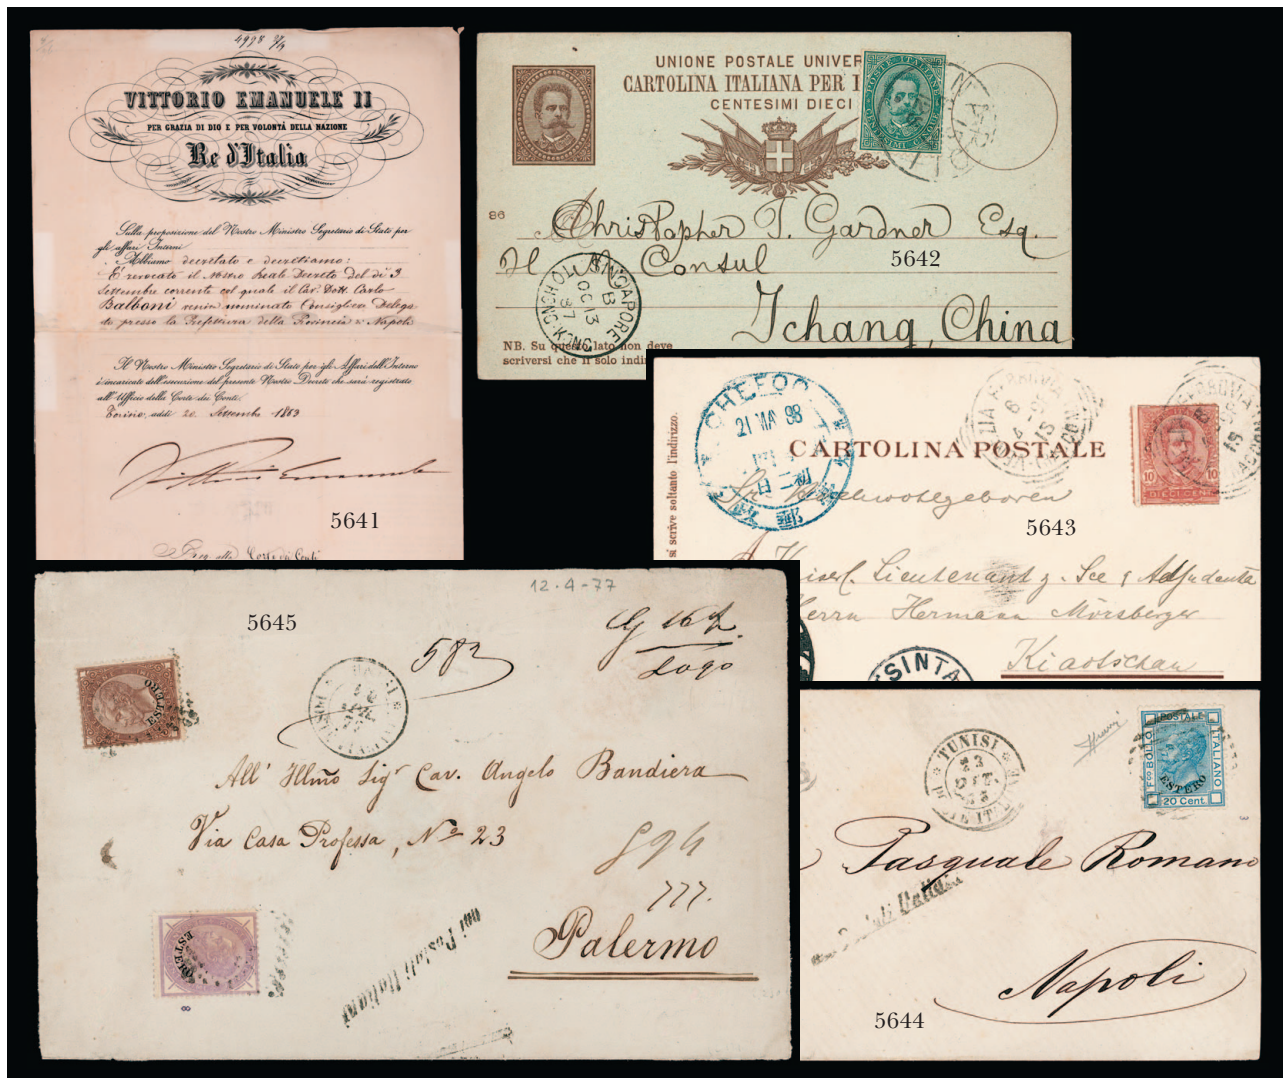 4978 3/4
VITTORIO EMANUELE II
PER GRAZIA DI DIO E PER VOLONTÀ DELLA NAZIONE
Re d'Italia
Sulla proposizione del Nostro Ministro Segretario di Stato per
gli affari Interni
Abbiamo decretato e decretiamo:
È revocato il nostro Reale Decreto del di 3
Settembre corrente col quale il Cav. Dott. Carlo
Balboni venia nominato Consigliere Delega
to presso la Prefettura della Provincia di Napoli
Il Nostro Ministro Segretario di Stato per gli Affari dell'Interno
è incaricato dell'esecuzione del presente Nostro Decreto che sarà registrato
all'Ufficio della Corte dei Conti.
Torino, addì 20 Settembre 1863
Vittorio Emanuele
5641
Reg. alla Corte dei Conti
UNIONE POSTALE UNIVER
CARTOLINA ITALIANA PER I
CENTESIMI DIECI
POSTE ITALIANE
CENTESIMI CINQUE
NAPOLI
86
Christopher T. Gardner Esq.
H Consul
5642
Ichang, China
SINGAPORE
B
OC 13
87
NB. Su questo lato non deve
scriversi che il solo indi
CHEFOO
21 MAR 98
CARTOLINA POSTALE
si scrive soltanto l'indirizzo.
10 10
DIECI CENT
Sr. Hochwohlgeboren
5643
Kaiserl. Lieutenant z. See & Adjudanta
Herrn Hermann Mörsberger
Kiaotschau
SINTA
12-4-77
5645
583
ESTERO
All' Illmo Sigr Cav. Angelo Bandiera
Via Casa Professa, No 23
594
777.
Palermo
ESTERO
8
oni Postali Italiani
TUNISI
23
POSTALE
Fco BOLLO
ITALIANO
ESTERO
20 Cent.
3
Pasquale Romano
Postali Italiani
Napoli
5644